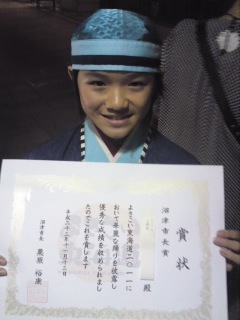 賞状
沼津市長賞
殿
よさこい東海道二〇一一に
おいて華麗な踊りを披露し
優秀な成績を収められまし
たのでこれを賞します
平成二十三年十一月十三日
沼津市長 栗原裕康